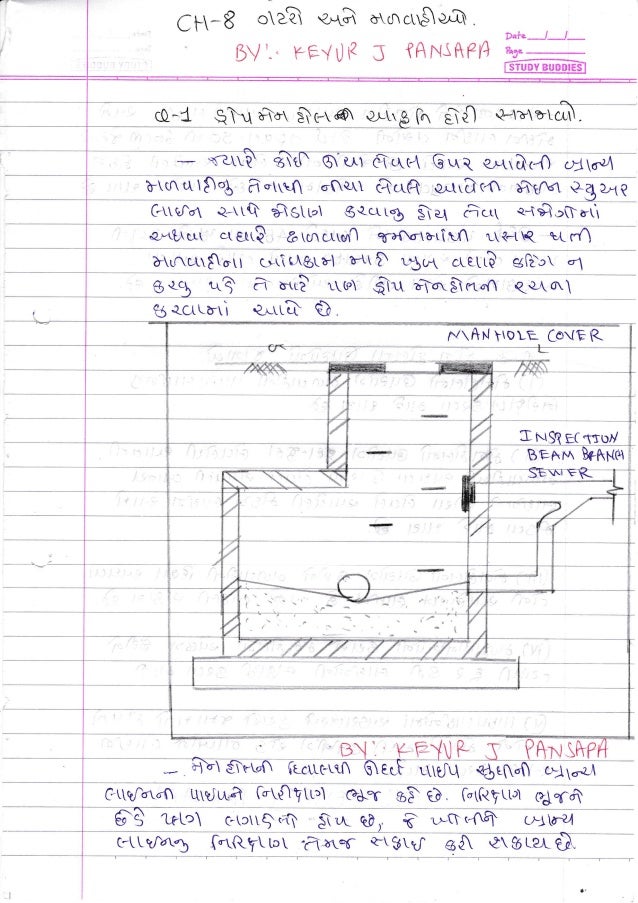 CH-8 ગટરો અને મળવાહીઓ.
BY:- KEYUR J PANSARA
Date / /
Page
STUDY BUDDIES
Q-1 ડ્રોપ મેન હોલની આકૃતિ દોરી સમજાવો.
— જ્યારે કોઈ ઊંચા લેવલ ઉપર આવેલી બ્રાન્ચ
મળવાહીનું તેનાથી નીચા લેવલે આવેલી મેઈન સ્યુઅર
લાઈન સાથે જોડાણ કરવાનું હોય તેવા સંજોગોમાં
અથવા વધારે ઢાળવાળી જમીનમાંથી પસાર થતી
મળવાહીના બાંધકામ માટે ખુબ વધારે કટિંગ ન
કરવુ પડે તે માટે પણ ડ્રોપ મેનહોલની રચના
કરવામાં આવે છે.
MANHOLE COVER
G L
INSPECTION
BEAM BRANCH
SEWER
BY:- KEYUR J PANSARA
— મેન હોલની દિવાલથી ઊર્ધ્વ પાઈપ સુધીની બ્રાન્ચ
લાઈનની પાઈપને નિરીક્ષણ ભૂજ કહે છે. નિરિક્ષણ ભૂજને
છેડે પ્લગ લગાડેલો હોય છે, જે ખોલીને બ્રાન્ચ
લાઈનનુ નિરિક્ષણ તેમજ સફાઈ કરી શકાય છે.